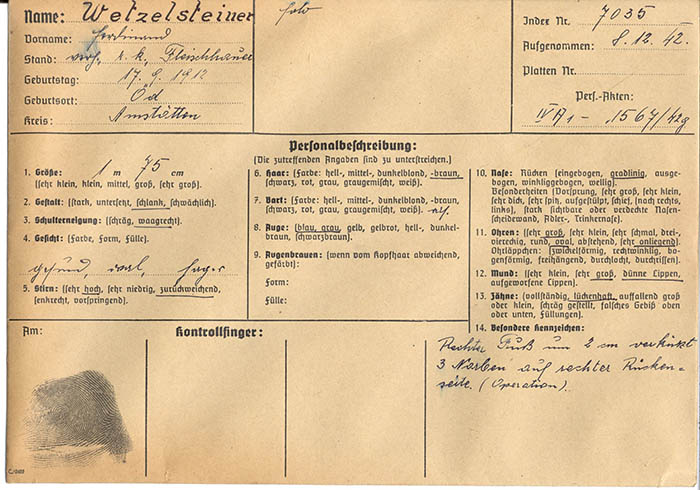 Name: Wetzelsteiner
Vorname: Ferdinand
Stand: verh. r. k. Fleischhauer
Geburtstag: 17. 9. 1912
Geburtsort: Öd
Kreis: Amstätten
Index Nr. 7035
Aufgenommen: 8. 12. 42.
Platten Nr.
Pers.-Akten:
IV A 1 - 1567/42g
Personalbeschreibung:
(Die zutreffenden Angaben sind zu unterstreichen.)
1. Größe: 1 m 75 cm
(sehr klein, klein, mittel, groß, sehr groß).
2. Gestalt: (stark, untersetzt, schlank, schwächlich).
3. Schulterneigung: (schräg, waagrecht).
4. Gesicht: (Farbe, Form, Fülle).
gesund, oval, hager
5. Stirn: (sehr hoch, sehr niedrig, zurückweichend,
senkrecht, vorspringend).
6. Haar: (Farbe: hell-, mittel-, dunkelblond, -braun,
schwarz, rot, grau, graugemischt, weiß).
7. Bart: (Farbe: hell-, mittel-, dunkelblond, -braun,
schwarz, rot, grau, graugemischt, weiß).
8. Auge: (blau, grau, gelb, gelbrot, hell-, dunkel-
braun, schwarzbraun).
9. Augenbrauen: (wenn vom Kopfhaar abweichend,
gefärbt):
Form:
Fülle:
10. Nase: Rücken (eingebogen, gradlinig, ausge-
bogen, winkliggebogen, wellig).
Besonderheiten (Vorsprung, sehr groß, sehr klein,
sehr dick, sehr spitz, aufgestülpt, schief, (nach rechts,
links), stark sichtbare oder verdeckte Nasen-
scheidewand, Adler-, Trinkernase).
11. Ohren: (sehr groß, sehr klein, sehr schmal, drei-,
viereckig, rund, oval, abstehend, sehr anliegend).
Ohrläppchen: (zwickelförmig, rechtwinklig, bo-
genförmig, freihängend, durchlocht, durchrissen).
12. Mund: (sehr klein, sehr groß, dünne Lippen,
aufgeworfene Lippen).
13. Zähne: (vollständig, lückenhaft, auffallend groß
oder klein, schräg gestellt, falsches Gebiß oben
oder unten, Füllungen).
14. Besondere Kennzeichen:
Rechter Fuß um 2 cm verkürzt
3 Narben auf rechter Rücken-
seite. (Operation).
Am:
Kontrollfinger: